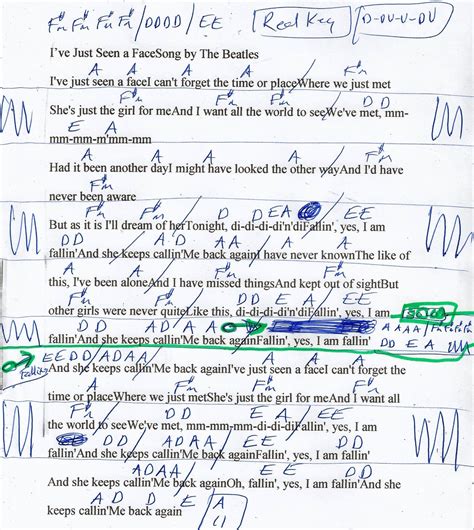 F#m F#m F#m F#m / DDDD / EE [Real Key] [D-DU-U-DU]
I've Just Seen a FaceSong by The Beatles
A A A A F#m
I've just seen a faceI can't forget the time or placeWhere we just met
F#m F#m D D
She's just the girl for meAnd I want all the world to seeWe've met, mm-
E A
mm-mm-m'mm-mm
A A A F#m
Had it been another dayI might have looked the other wayAnd I'd have
F#m
never been aware
F#m F#m D D E A / EE
But as it is I'll dream of herTonight, di-di-di-di'n'diFallin', yes, I am
DD A D AA / A A
fallin'And she keeps callin'Me back againI have never knownThe like of
A A F#m F#m
this, I've been aloneAnd I have missed thingsAnd kept out of sightBut
F#m D D E A / EE
other girls were never quiteLike this, di-di-di-di'n'diFallin', yes, I am
DD ADA A AAAA /
fallin'And she keeps callin'Me back againFallin', yes, I am fallin' DD E A
EEDD/ADAA
Falling
And she keeps callin'Me back againI've just seen a faceI can't forget the
A F#m F#m F#m
time or placeWhere we just metShe's just the girl for meAnd I want all
D D E A / EE
the world to seeWe've met, mm-mm-mm-di-di-diFallin', yes, I am
DD / ADAA / EE / DD
fallin'And she keeps callin'Me back againFallin', yes, I am fallin'
ADAA / EE D D
And she keeps callin'Me back againOh, fallin', yes, I am fallin'And she
A D D E A
keeps callin'Me back again